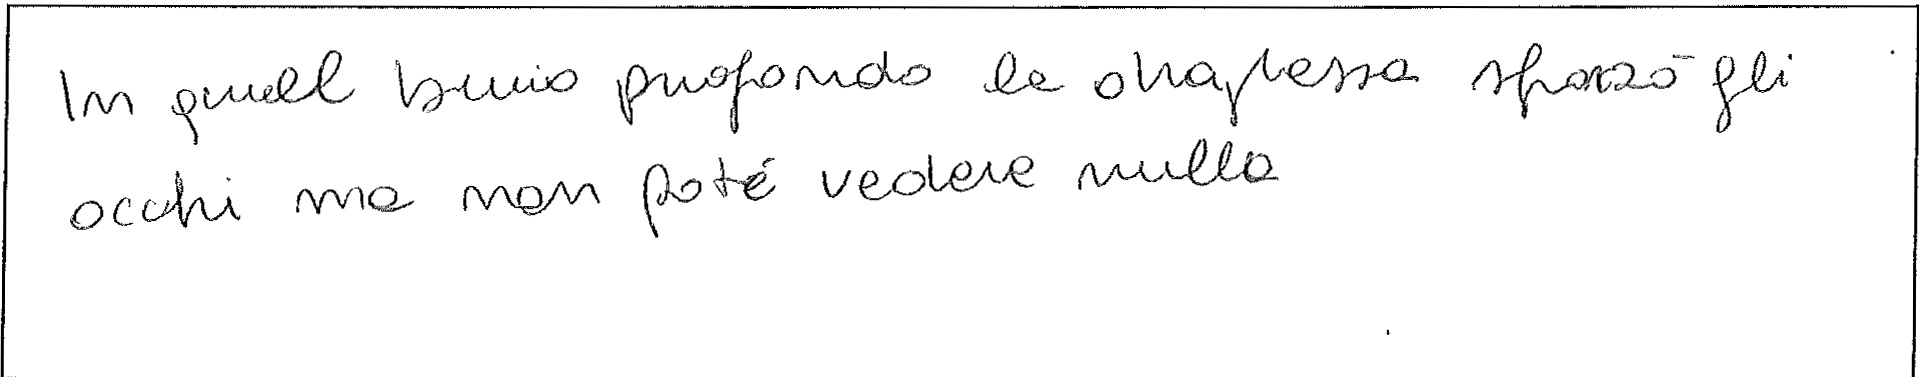 In quell buio profondo la draghessa sforzò gli
occhi ma non poté vedere nulla